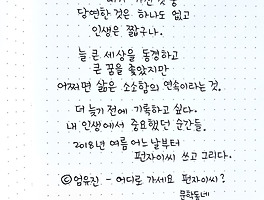 당연한 것은 하나도 없고
인생은 짧구나.
늘 큰 세상을 동경하고
큰 꿈을 좇았지만
어쩌면 삶은 소소함의 연속이라는 것.
더 늦기 전에 기록하고 싶다.
내 인생에서 중요했던 순간들.
2018년 여름 어느 날부터
펀자이씨 쓰고 그리다.
©엄유진 - 어디로 가세요 펀자이씨?
문학동네